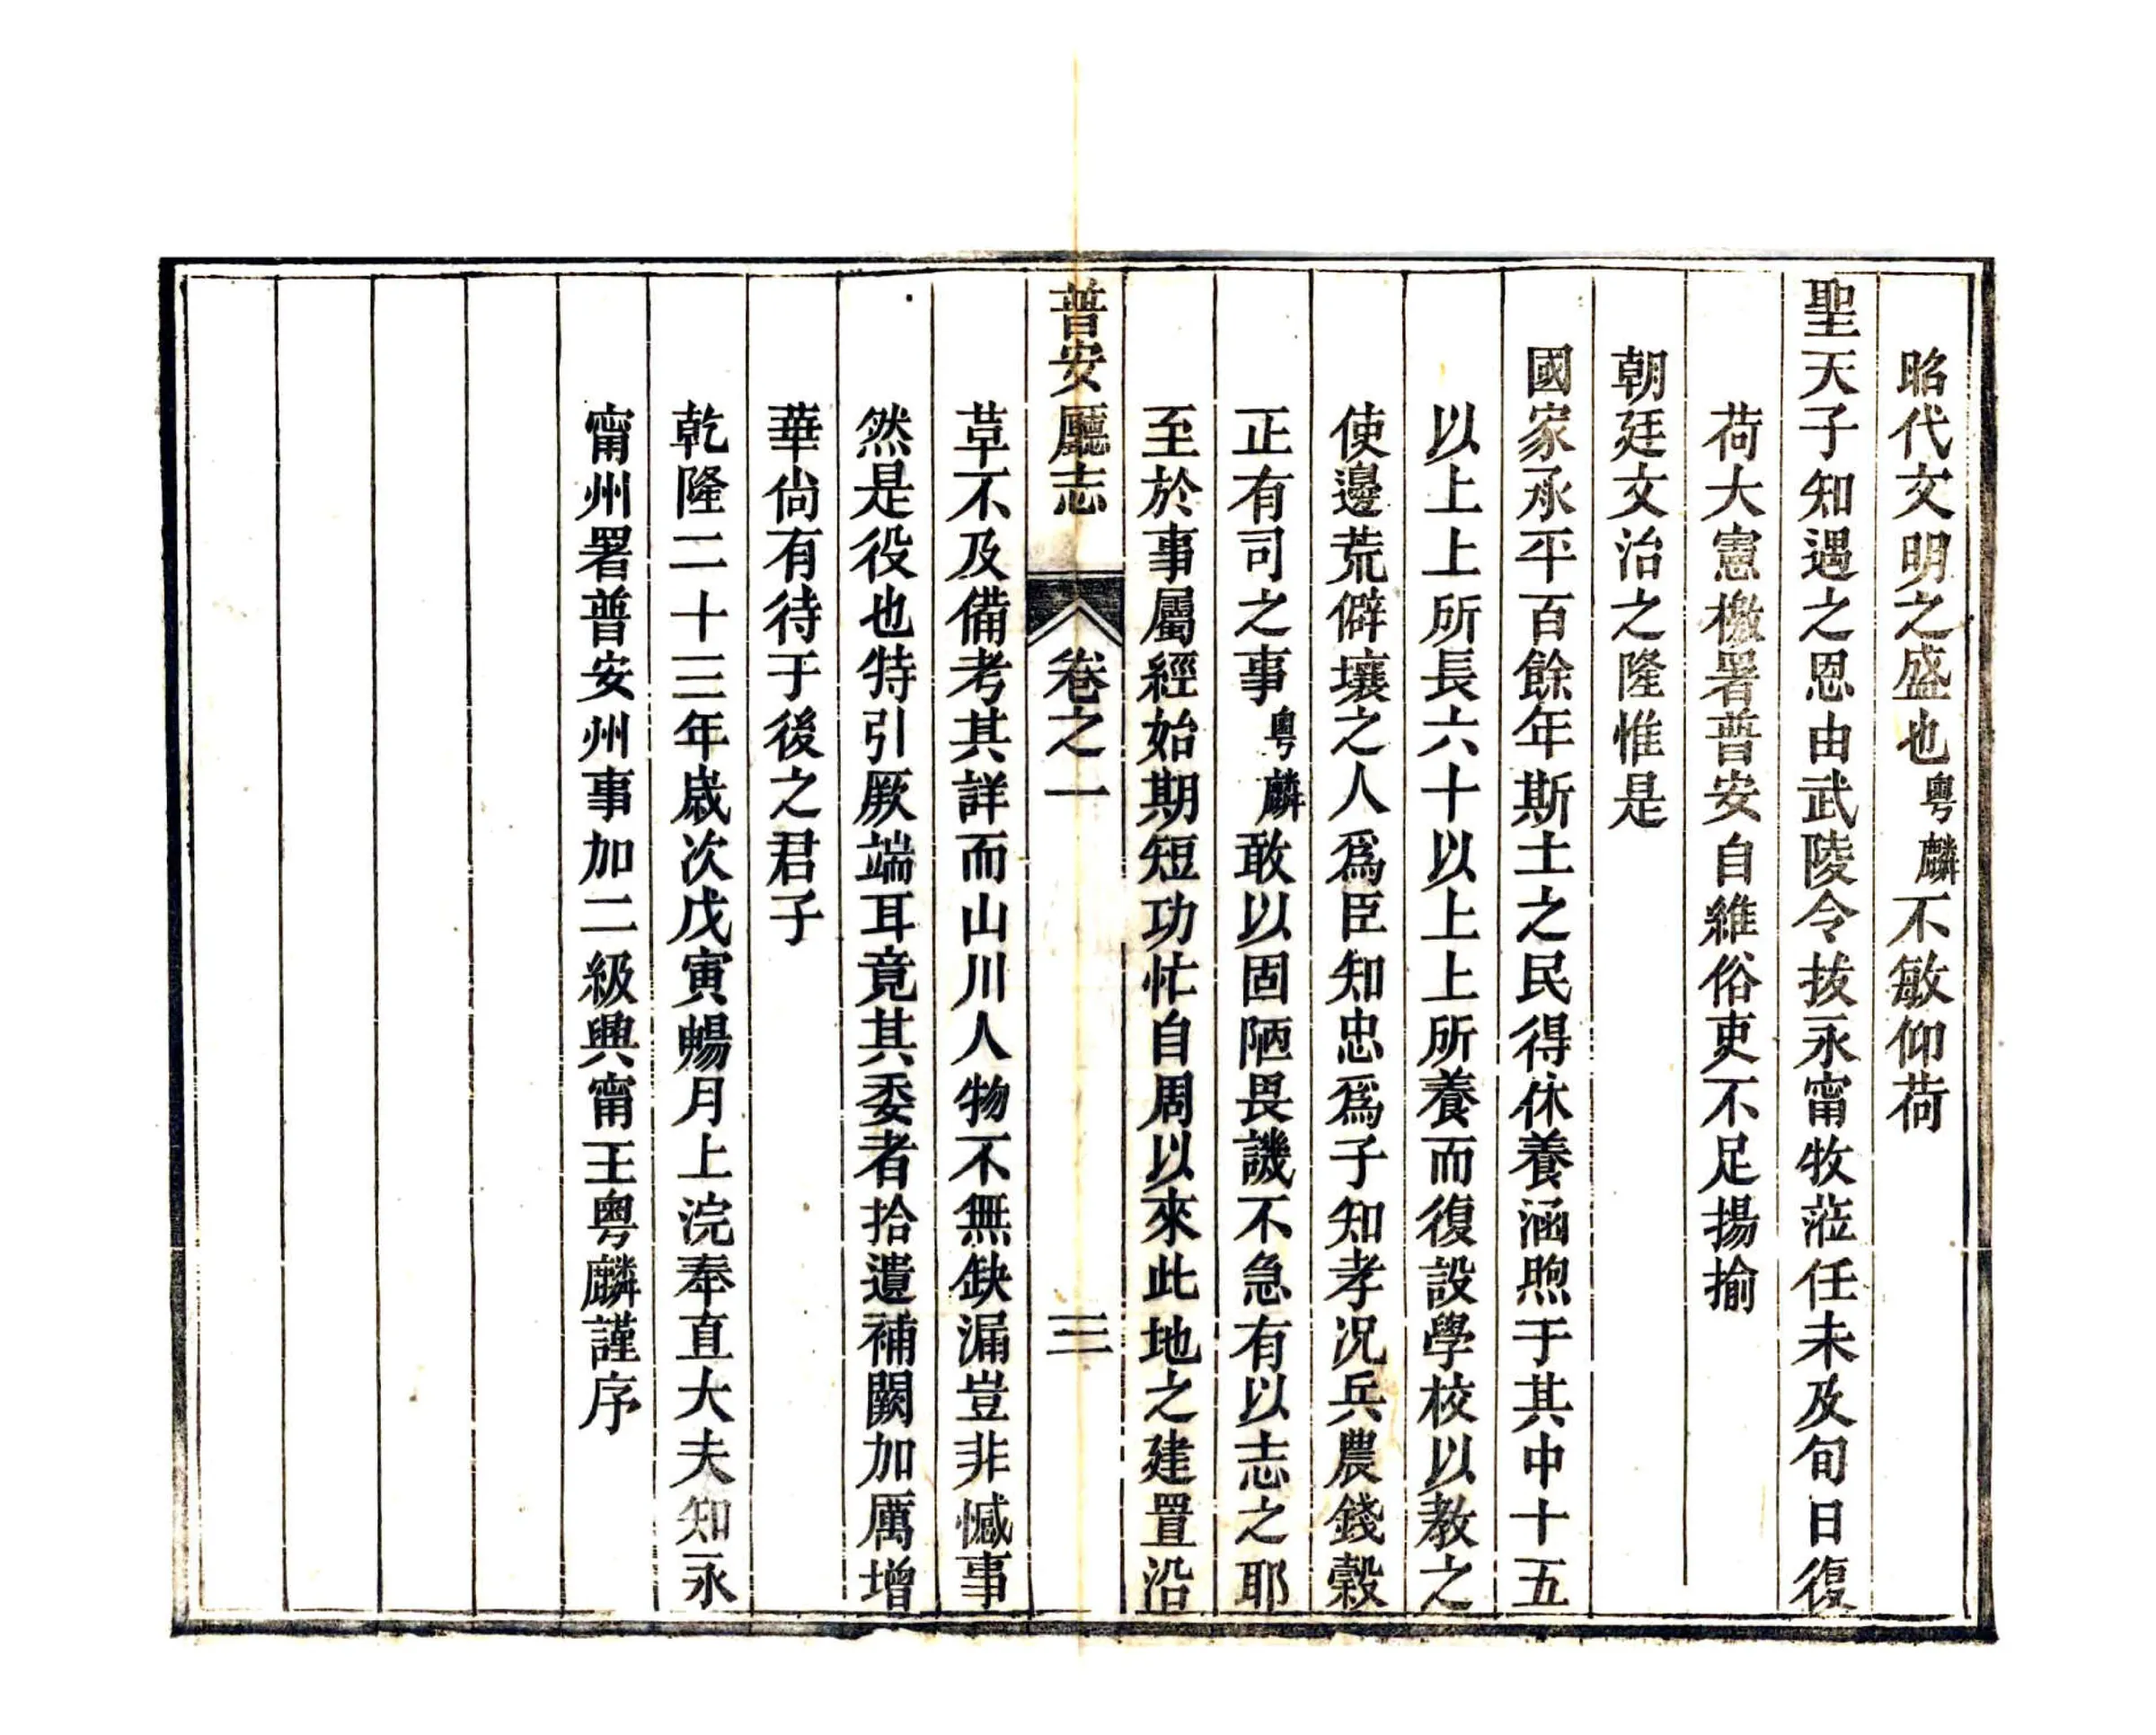 昭代文明之盛也粵麟不敏仰荷
聖天子知遇之恩由武陵令拔永甯牧蒞任未及旬日復
荷大憲檄署普安自維俗吏不足揚揄
朝廷文治之隆惟是
國家承平百餘年斯土之民得休養涵煦于其中十五
以上上所長六十以上上所養而復設學校以教之
使邊荒僻壤之人爲臣知忠爲子知孝况兵農錢穀
正有司之事粵麟敢以固陋畏譏不急有以志之耶
至於事屬經始期短功忙自周以來此地之建置沿
普安廳志 卷之一 三
草不及備考其詳而山川人物不無缺漏豈非憾事
然是役也特引厥端耳竟其委者拾遺補闕加厲增
華尙有待于後之君子
乾隆二十三年歲次戊寅暢月上浣奉直大夫知永
甯州署普安州事加二級興甯王粵麟謹序